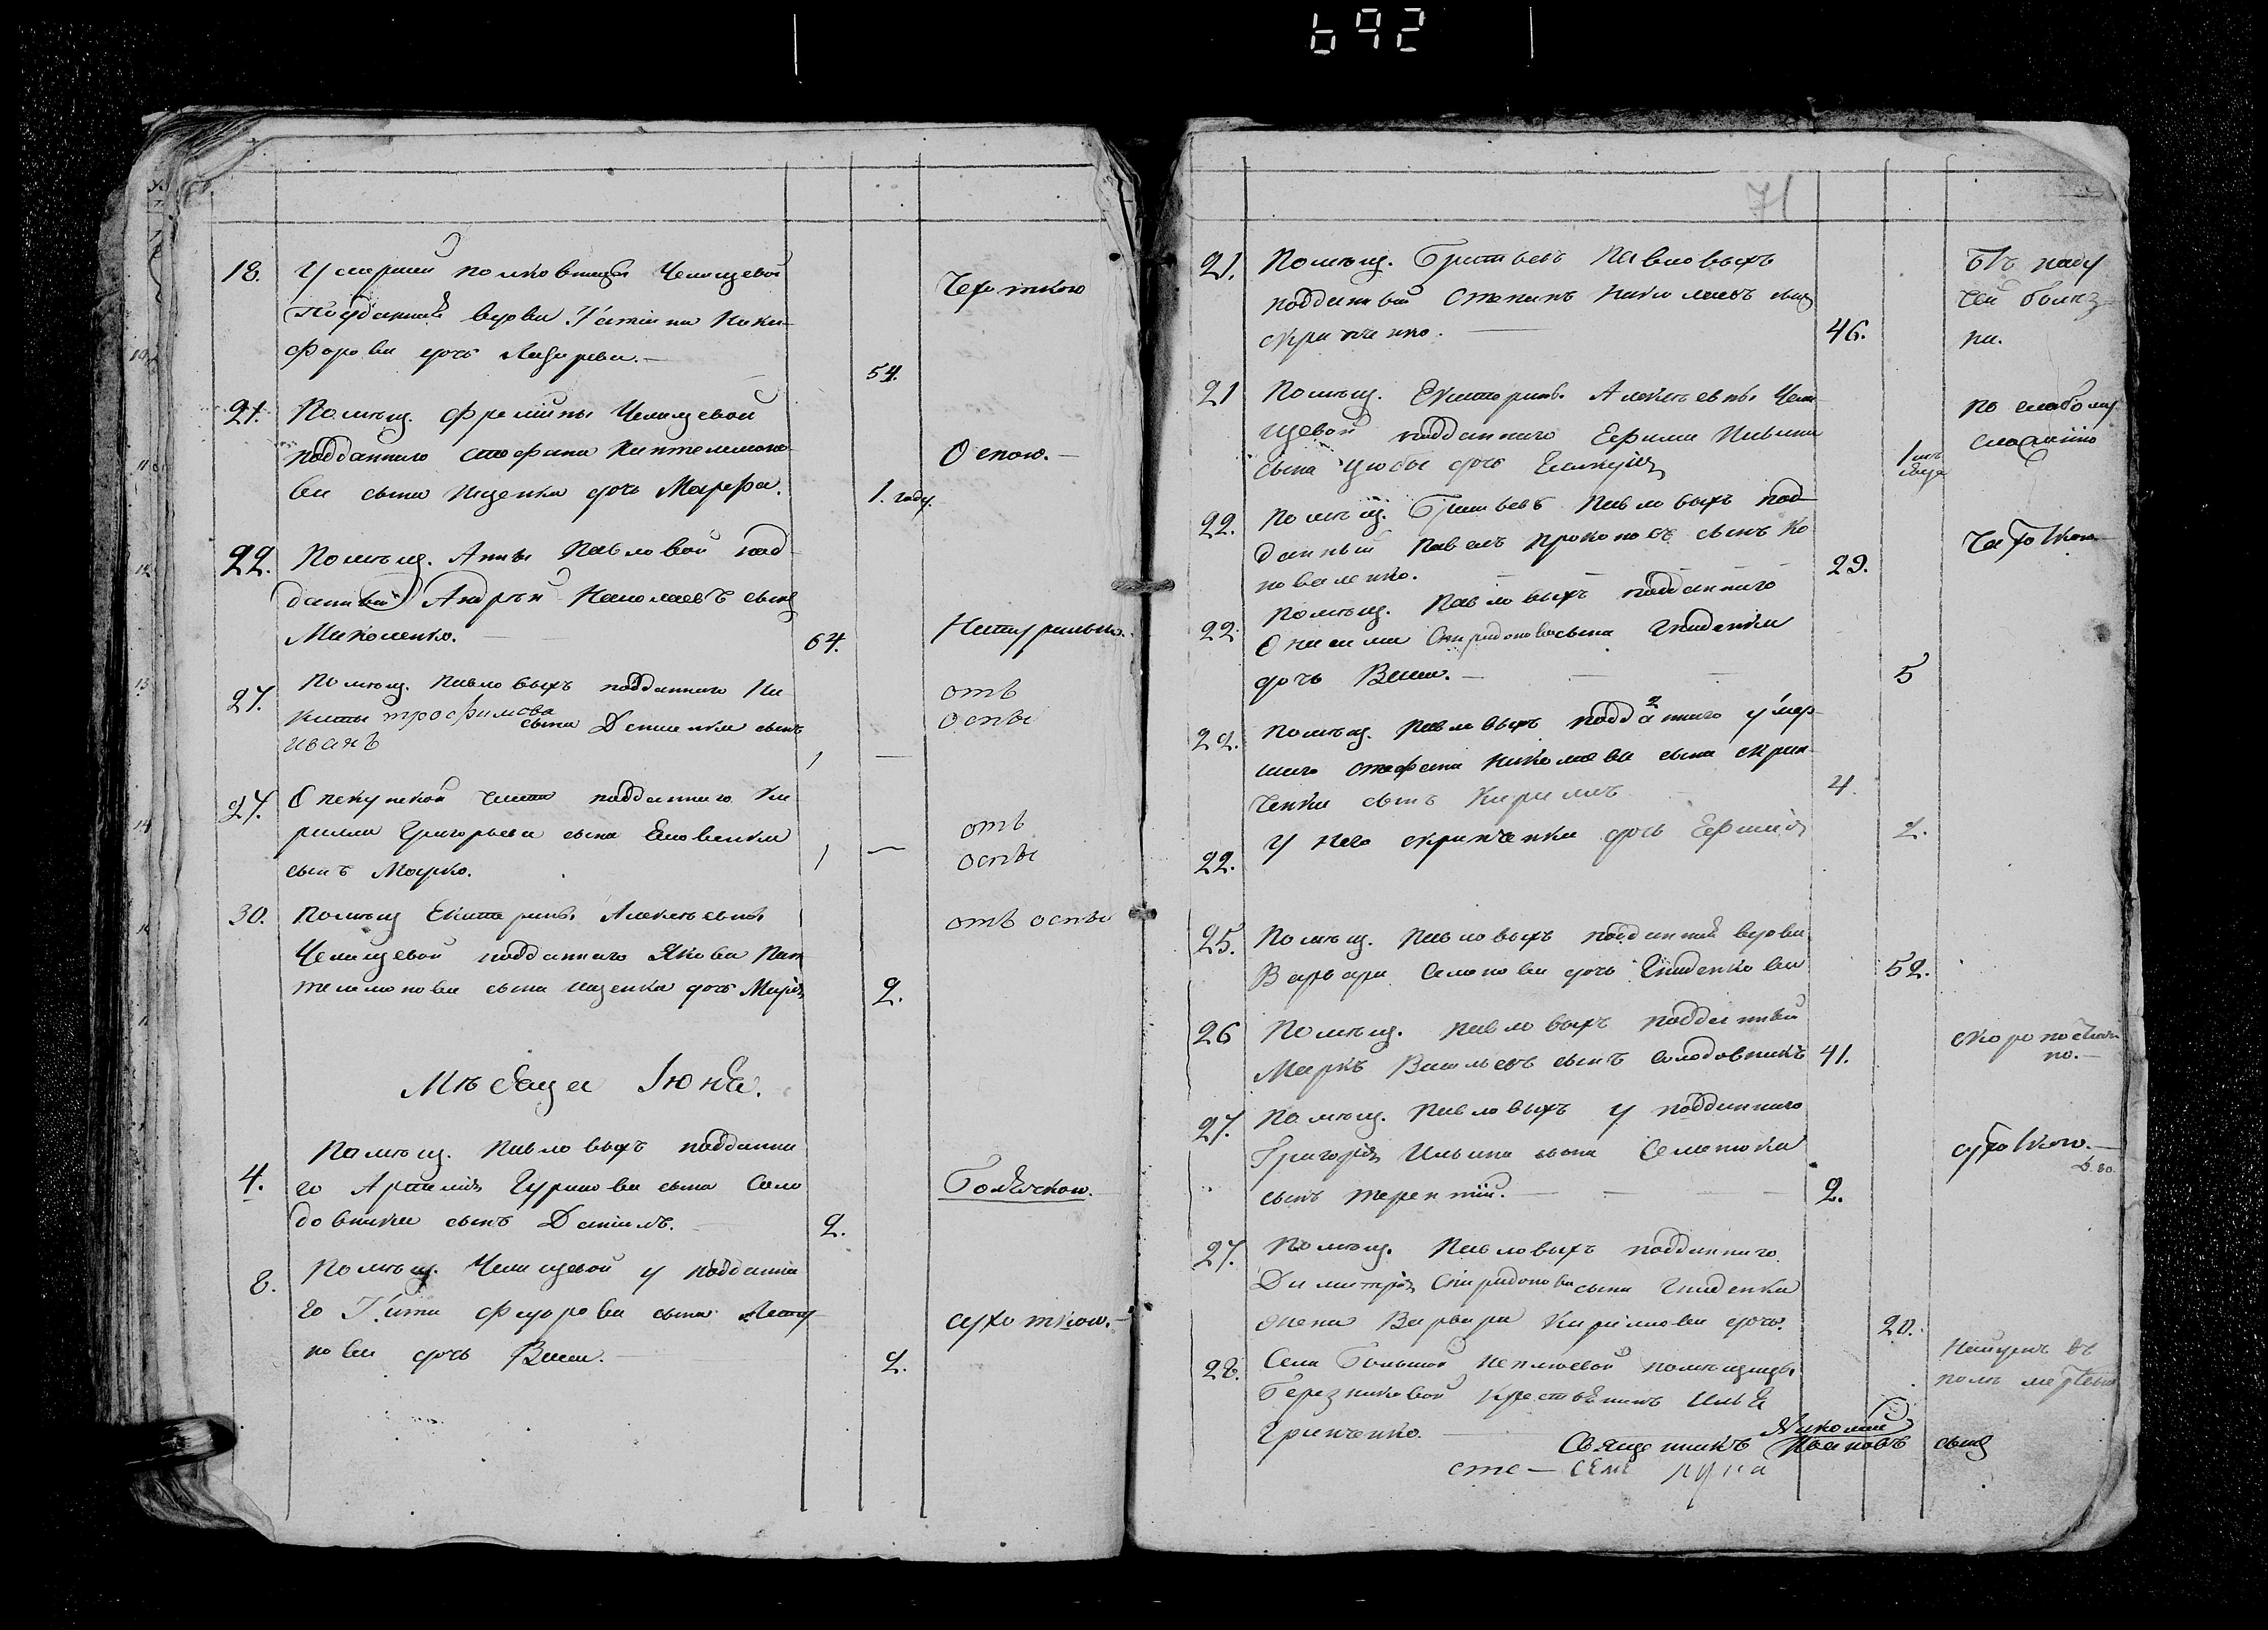 692
18. Умершей полковницы Челищевой
подданная вдова Татіана Ники-
форова дочь Лазарева.— 54. Чахоткою
21. Помѣщ. Челищевой
подданнаго Стефана Пантелимоно-
ва сына Ищенка дочь Марфа. 1. году. Оспою.—
22. Помѣщ. Анны Павловой под-
данный Андрѣй Николаевъ сынъ
Миколенко. 64. Натурально.
27. Помѣщ. Павловыхъ подданнаго Ни
киты трофимова сына Денисенка сынъ
иванъ 1 — отъ оспы
27. Опекунской части подданнаго Ки
рилла Григорьева сына Еловенка
сынъ Марко. 1 — отъ оспы
30. Помѣщ Екатерины Алексѣевны
Челищевой подданнаго Якова Пан
телимонова сына ищенка дочь Марія 2. отъ оспы
Мѣсяца Іюня.
4. Помѣщ. Павловыхъ подданна
го сына Соло
довника сынъ Даніилъ. 2.
8. Помѣщ. Челищевой у подданна
го Тита Федорова сына
нова дочь Васса. 2. сухоткою.—
71
21. Помѣщ. Братьевъ Павловыхъ
подданный Степанъ Николаевъ сынъ
скрипченко. 46. паду
чей болѣз-
ни.
21 Помѣщ. Екатерины Алексѣевны Чели-
щевой подданнаго Ефима
сына дочь 1 мѣ
сяца по слабому
сложенію
22. Помѣщ. Братьевъ Павловыхъ под
данный Павелъ Прокоповъ сынъ Ко
новаленко. 29. Чахоткою
22. Помѣщ. Павловыхъ подданнаго
Онисима Спиридонова сына Гниденка
дочь Васса. 5
22. помѣщ. Павловыхъ подданнаго умер-
шаго стефана николаева сына скрип-
ченка сынъ Кириллъ 4.
22. У него скрипченка дочь 2.
25. Помѣщ. Павловыхъ подданная вдова
Варвара Семенова дочь Гниденкова 52.
26 Помѣщ. Павловыхъ подданный
Маркъ Васильевъ сынъ солодовникъ 41. скоропостиж
но.—
27. Помѣщ. Павловыхъ у подданнаго
Григорія Ильина сына Семенюка
сынъ терентій. 2. сухоткою.—
27. Помѣщ. Павловыхъ подданнаго
Димитрія Спиридонова сына Гниденка
жена Варвара Кирилова дочь. 20.
28. Села Большой Неплюевой помѣщицы
Березниковой крестьянинъ Илья
Гринченко. Найденъ въ
полѣ мертвъ
Священникъ Николай Ивановъ сынъ